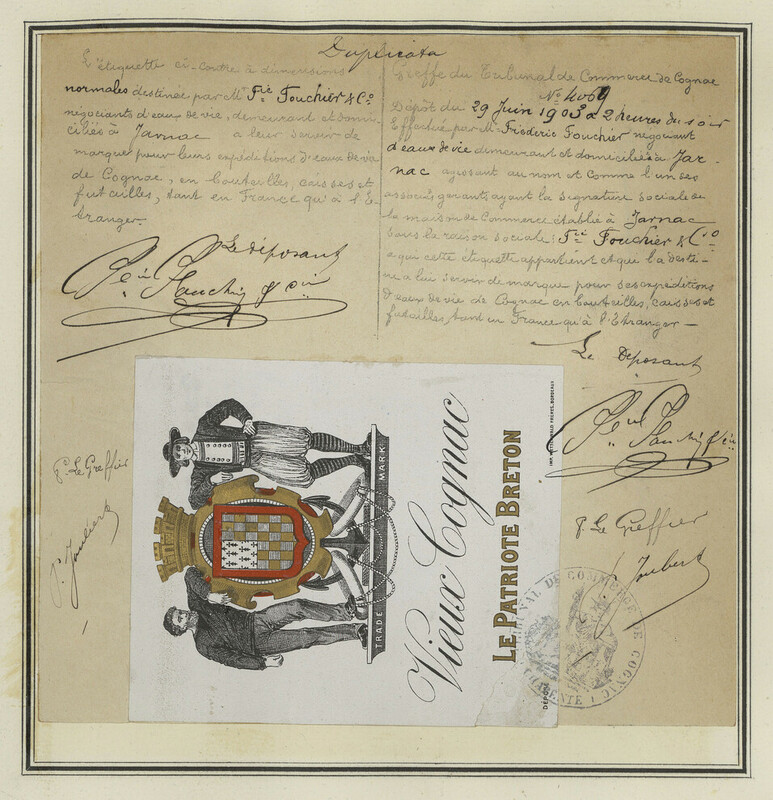 Duplicata
L'étiquette ci-contre à dimensions
normales destinée par Mr Fic Fouchier & Co
négociants d'eaux de vie, demeurant et domi-
ciliés à Jarnac a leur servir de
marque pour leurs expéditions d'eaux de vie
de Cognac, en bouteilles, caisses et
futailles, tant en France qu'à l'E-
tranger.
Le déposant
Greffe du Tribunal de Commerce de Cognac
No 4069
Dépôt du 29 Juin 1903 à 2 heures du soir
Effectué par Mr Fréderic Fouchier négociant
d'eaux de vie demeurant et domicilié à Jar-
nac agissant au nom et comme l'un des
associés gérants ayant la signature sociale de
la maison de Commerce établie à Jarnac
sous la raison sociale: Fic Fouchier & Cie
a qui cette étiquette appartient et qui l'a desti-
née a lui servir de marque pour ses expéditions
d'eaux de vie de Cognac en bouteilles, caisses et
futailles, tant en France qu'à l'Etranger —
Le Déposant
P. Le Greffier
P. Le Greffier
J. Joubert
TRADE MARK
Vieux Cognac
LE PATRIOTE BRETON
FRÈRES, BORDEAUX
DÉPOSÉ
TRIBUNAL DE COMMERCE DE COGNAC
CHARENTE